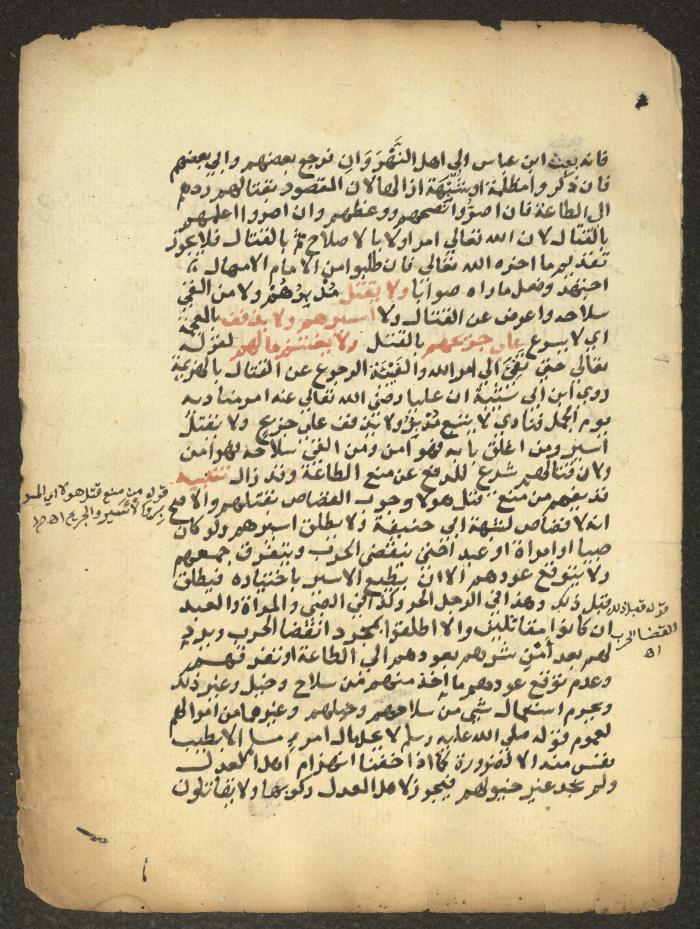 فانه بعث ابن عباس الي اهل النَّهْرَوَانِ فرجع بعضهم وابي بعضهم
فان ذكروا مظلمة او شُبْهَة ازالها لان المقصود بقتالهم ردهم
الي الطاعة فان اصرُّوا نصحهم ووعظهم وان اصروا اعلمهم
بالقتال لان الله تعالي امر اولا بالاصلاح ثم بالقتال فلا يجوز
تقديم ما اخره الله تعالي فان طلبوا من الامام الامهال
اجتهد وفعل ما راه صوابا ولا يقتل مُدْبِرُهُمْ ولا من القي
سلاحه واعرض عن القتال ولا اسيرهم ولا يذفف بالمعجمة
اي لا يسرع علي جريحهم بالقتل ولا يغتنم مالهم لقوله
تعالي حتي تفيء الي امر الله والفَيْئَة الرجوع عن القتال بالهزيمة
روي ابن ابي شيبة ان عليا رضي الله تعالي عنه امر مناديه
يوم الجمل فنادي لا يتبع مُدْبِرٌ ولا يذفف علي جريح ولا يقتلُ
اسير ومن اغلق بابه فهو امن ومن القي سلاحه فهو امن
ولان قتالهم شرع للدفع عن منع الطاعة وقد زال تنبيه
قد يفهم من منع قتل هولا وجوب القصاص بقتلهم والاصح
انه لا قصاص لشبهة ابي حنيفة ولا يطلق اسيرهم ولو كان
صبيا او امراة او عبدا حتي ينقضي الحرب ويتفرق جمعهم
ولا يتوقع عودهم الا ان يطيع الاسير باختياره فيطلق
قبل ذلك وهذا في الرجل الحر وكذا في الصبي والمراة والعبد
ان كانوا مقاتلين والا اطلقوا بمجرد انقضا الحرب ويرد
لهم بعد اَمْنِ شرهم بعودهم الي الطاعة او تفرقهم
وعدم توقع عودهم ما اخذ منهم من سلاح وخيل وغير ذلك
ويحرم استعمال شي من سلاحهم وخيلهم وغيرهما من اموالهم
لعموم قوله صلي الله عليه وسلم لا يحل مال امرء مسلم الا بطيب
نفس منه الا لضرورة كما اذا خفنا انهزام اهل العدل
ولم نجد غير خيولهم فيجوز لاهل العدل ركوبها ولا يقاتلون
قوله من منع قتل هولا اي المدبر
والاسير والجريح اه
قوله قبل ذلك
انقضا الحرب
اه